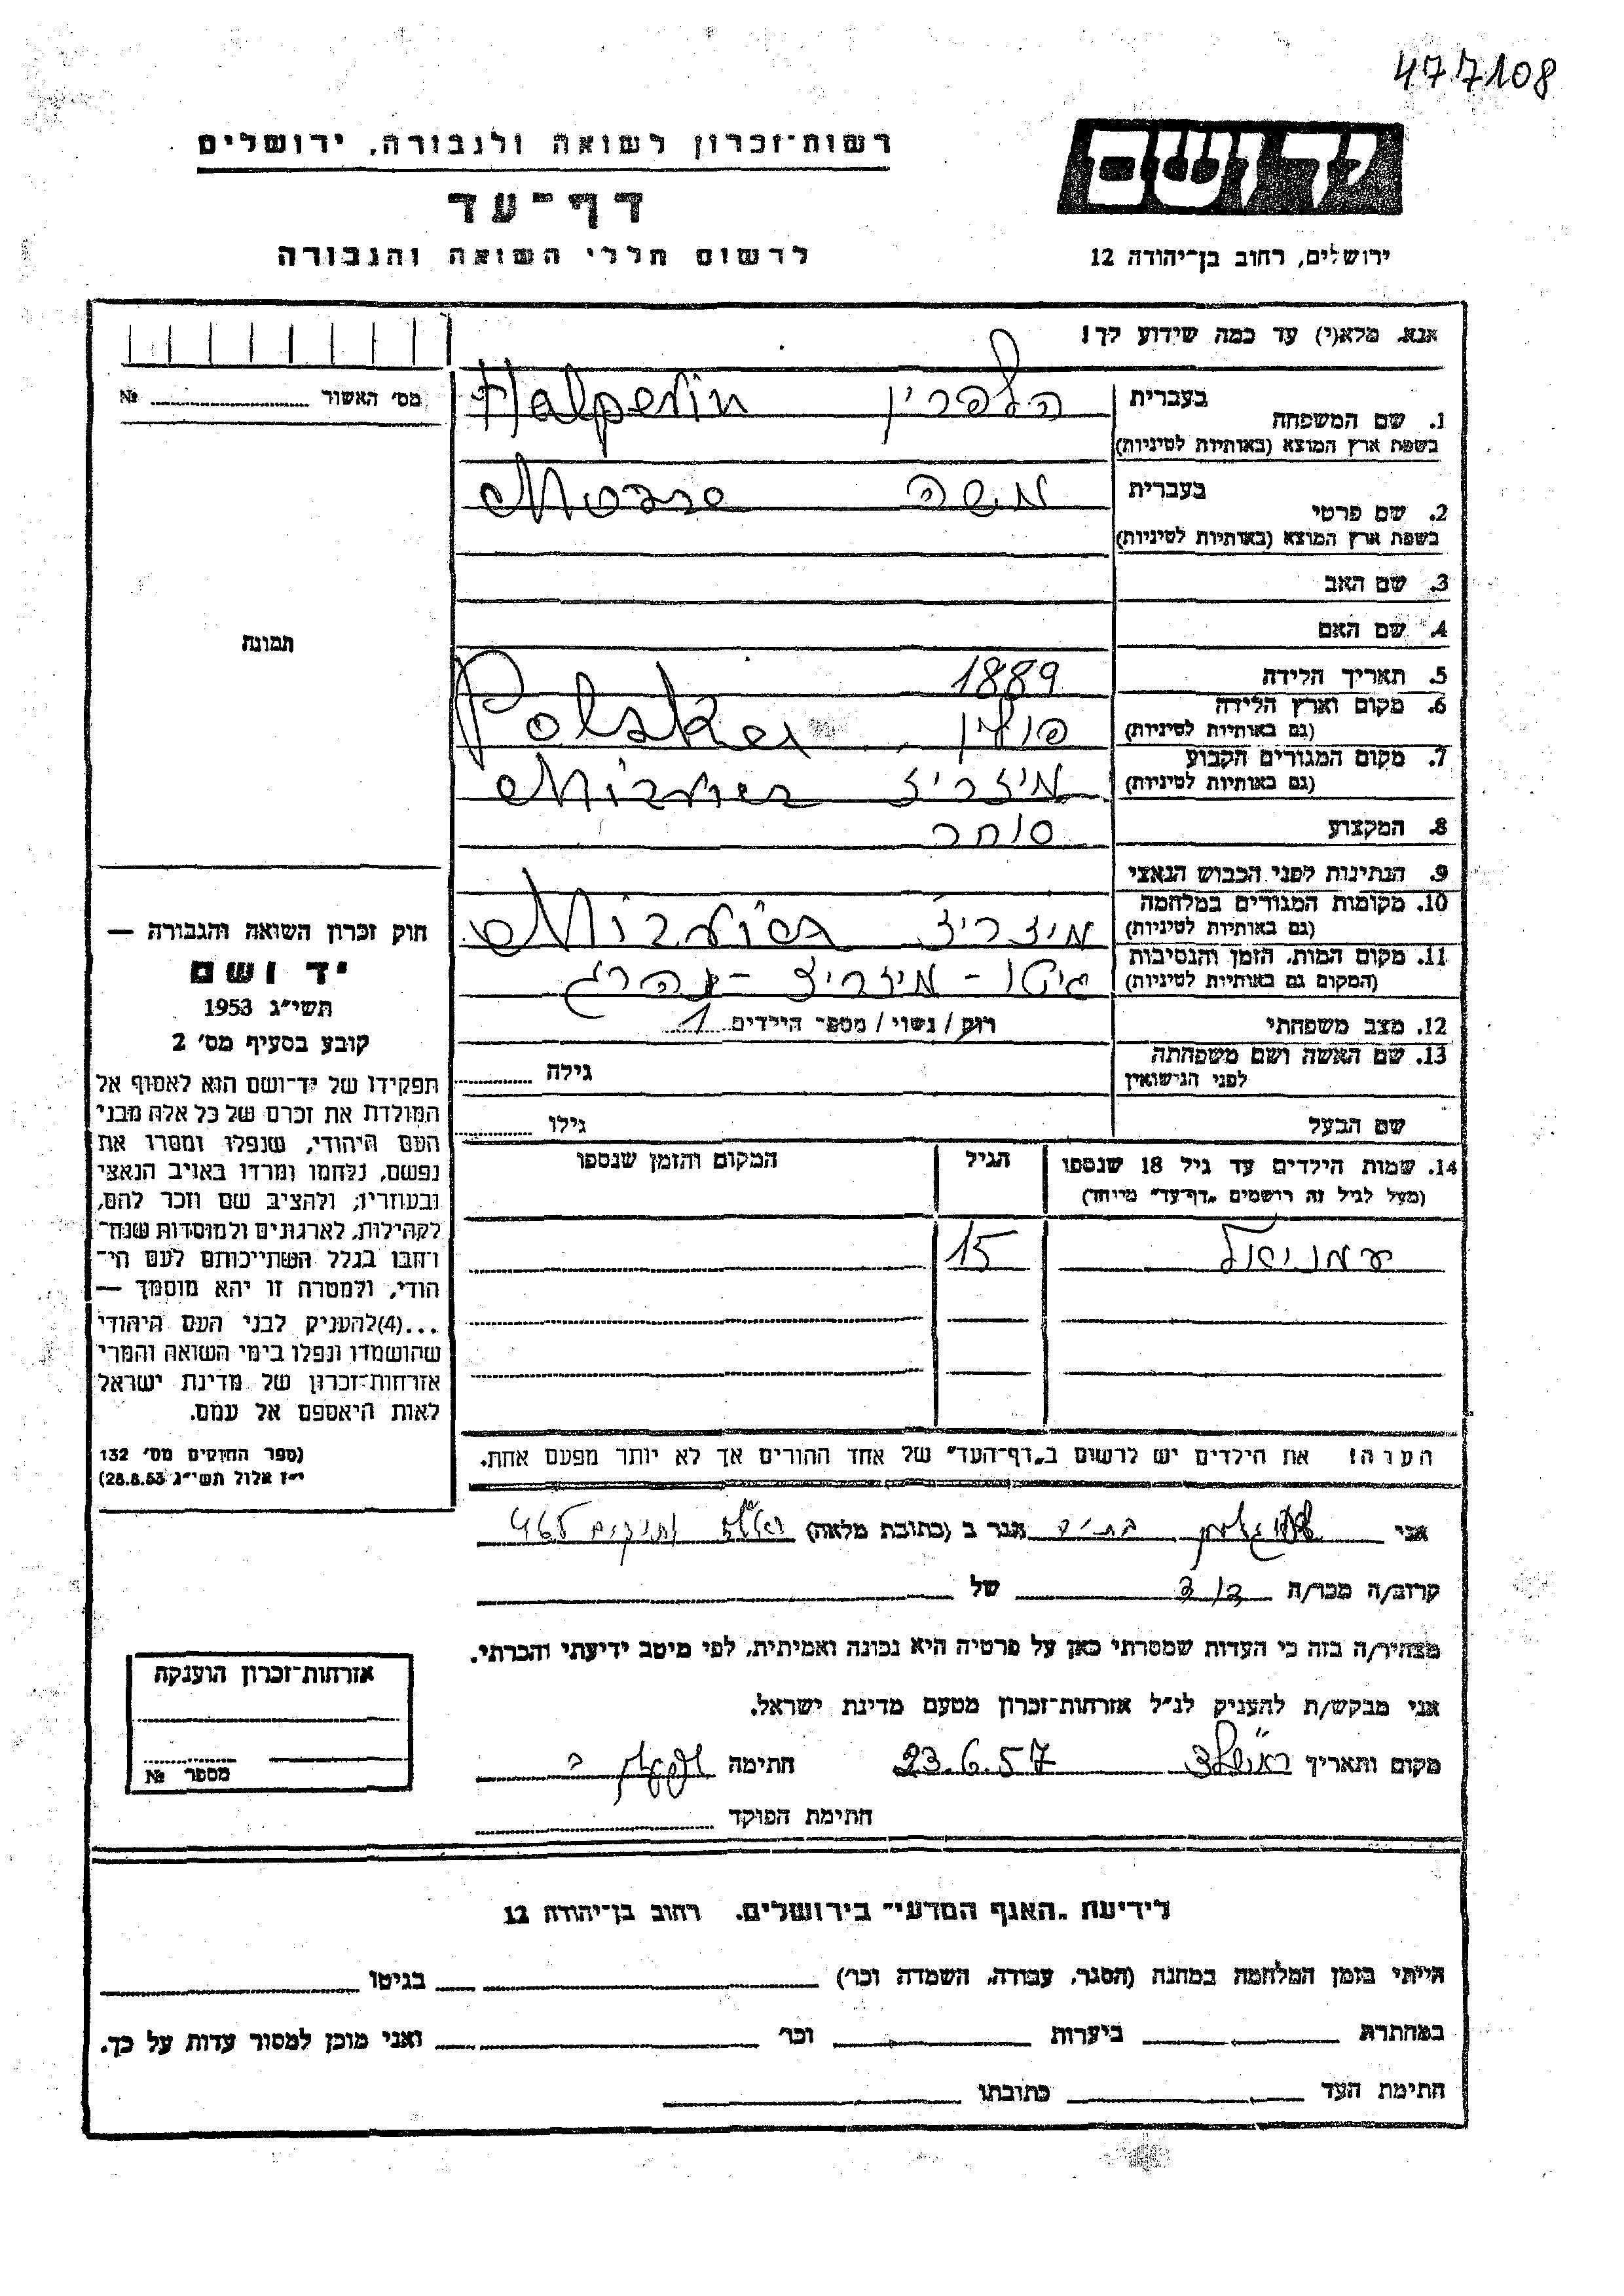 477108
יד ושם
ירושלים, רחוב בן־יהודה 12
רשות־זכרון לשואה ולגבורה, ירושלים
דף־עד
לרשום חללי השואה והגבורה
אנא, מלא(י) עד כמה שידוע לך!
מס׳ האשור № 
1. שם המשפחה
בעברית הלפרין Halperin
בשפת ארץ המוצא (באותיות לטיניות)
2. שם פרטי
בעברית משה
בשפת ארץ המוצא (באותיות לטיניות)
3. שם האב
4. שם האם
5. תאריך הלידה 1889
6. מקום וארץ הלידה פולין Polska
(גם באותיות לטיניות)
7. מקום המגורים הקבוע
(גם באותיות לטיניות)
8. המקצוע סוחר
9. הנתינות לפני הכבוש הנאצי
10. מקומות המגורים במלחמה
(גם באותיות לטיניות)
11. מקום המות, הזמן והנסיבות גיטו - - נהרג
(המקום גם באותיות לטיניות)
12. מצב משפחתי רוק / נשוי / מספר הילדים 1
13. שם האשה ושם משפחתה
לפני הנישואין גילה
שם הבעל גילו
14. שמות הילדים עד גיל 18 שנספו הגיל המקום והזמן שנספו
(מעל לגיל זה רושמים „דף־עד״ מיוחד)
עמנואל 15
הערה! את הילדים יש לרשום ב„דף־העד״ של אחד ההורים אך לא יותר מפעם אחת.
תמונה
חוק זכרון השואה והגבורה —
יד ושם
תשי״ג 1953
קובע בסעיף מס׳ 2
תפקידו של יד־ושם הוא לאסוף אל
המולדת את זכרם של כל אלה מבני
העם היהודי, שנפלו ומסרו את
נפשם, נלחמו ומרדו באויב הנאצי
ובעוזריו; ולהציב שם וזכר להם,
לקהילות, לארגונים ולמוסדות שנח־
רבו בגלל השתייכותם לעם הי־
הודי, ולמטרה זו יהא מוסמך —
...(4)להעניק לבני העם היהודי
שהושמדו ונפלו בימי השואה והמרי
אזרחות־זכרון של מדינת ישראל
לאות היאספם אל עמם.
(ספר החוקים מס׳ 132
י״ז אלול תשי״ג 28.8.53)
אני הגר ב (כתובת מלאה)
קרוב/ה מכר/ה דוד של
מצהיר/ה בזה כי העדות שמסרתי כאן על פרטיה היא נכונה ואמיתית, לפי מיטב ידיעתי והכרתי.
אני מבקש/ת להעניק לנ״ל אזרחות־זכרון מטעם מדינת ישראל.
מקום ותאריך ראשל״צ 23.6.57 חתימה
חתימת הפוקד
אזרחות־זכרון הוענקה
מספר №
לידיעת „האגף המדעי״ בירושלים, רחוב בן־יהודה 12
הייתי בזמן המלחמה במחנה (הסגר, עבודה, השמדה וכו׳) בגיטו
במחתרת ביערות וכו׳ ואני מוכן למסור עדות על כך.
חתימת העד כתובתו